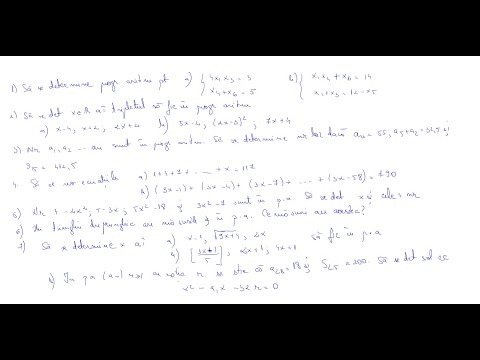 1) Să se determine progr aritm pt a) { 4x1x3 = 3 b) { x1x4 + x6 = 14
x4+x6 = 5 x1+x3 = 12-x5
2) Să se det x∈R aî tripletul să fie în progr aritm
a) x-4, x+2, 2x+2 b) 5x-4; (2x-3)²; 7x+4
3) Nr a1, a2 ... an sunt în progr aritm. Să se determine nr lor dacă an = 55, a5+a2 = 32,5 și
S15 = 412,5
4. Să se rez ecuațiile a) 1+1+7+...+x = 117
b) (3x-1)+(3x-4)+(3x-7)+...+(3x-58) = 790
5) Nr 1-4x², 5-3x, 5x²-18 și 3x²-7 sunt în p.a. Să se det x și cele 4 nr
6) Un triunghi dreptunghic are măsurile în p.a. Ce măsuri au acestea?
7) Să se determine x aî a) x-1, √9x+4, 2x să fie în p.a
b) [3x+1 / 5], 2x+1, 4x+1
8) În p.a (an) n≥1 cu rația r se știe că a28 = 18 și S25 = 200. Să se det sol ec
x² - a1x - 3xr = 0